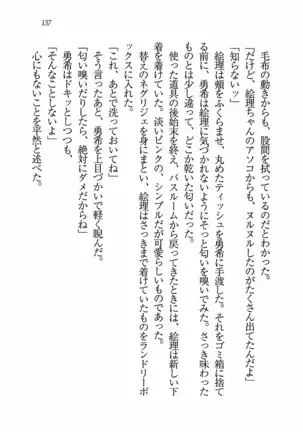 137
毛布の動きからも、股間を拭いているのだとわかった。
「だけど、絵理ちゃんのアソコからも、ヌルヌルしたのがたくさん出てたんだよ」
「知らないッ」
絵理は頬をふくらませ、丸めたティッシュを勇希に手渡した。それをゴミ箱に捨て
る前に、勇希は絵理に気づかれないようにそっと匂いを嗅いでみた。さっき味わった
ものとは少し違って、どこか乾いた匂いだった。
使った道具の後始末を終え、バスルームから戻ってきたときには、絵理は新しい下
着を着けていた。淡いピンクの、シンプルだが可愛らしいものであった。
替えのネグリジェに身を包み、絵理はさっきまで着けていたものをランドリーボ
ックスに入れた。
「これ、あとで洗っておいてね」
そう言ったあと、勇希を上目づかいで軽く睨んだ。
「匂い嗅いだりしたら、絶対にダメだからね」
勇希はドキッとしつつも、
「そんなことしないよ」
心にもないことを平然と述べた。